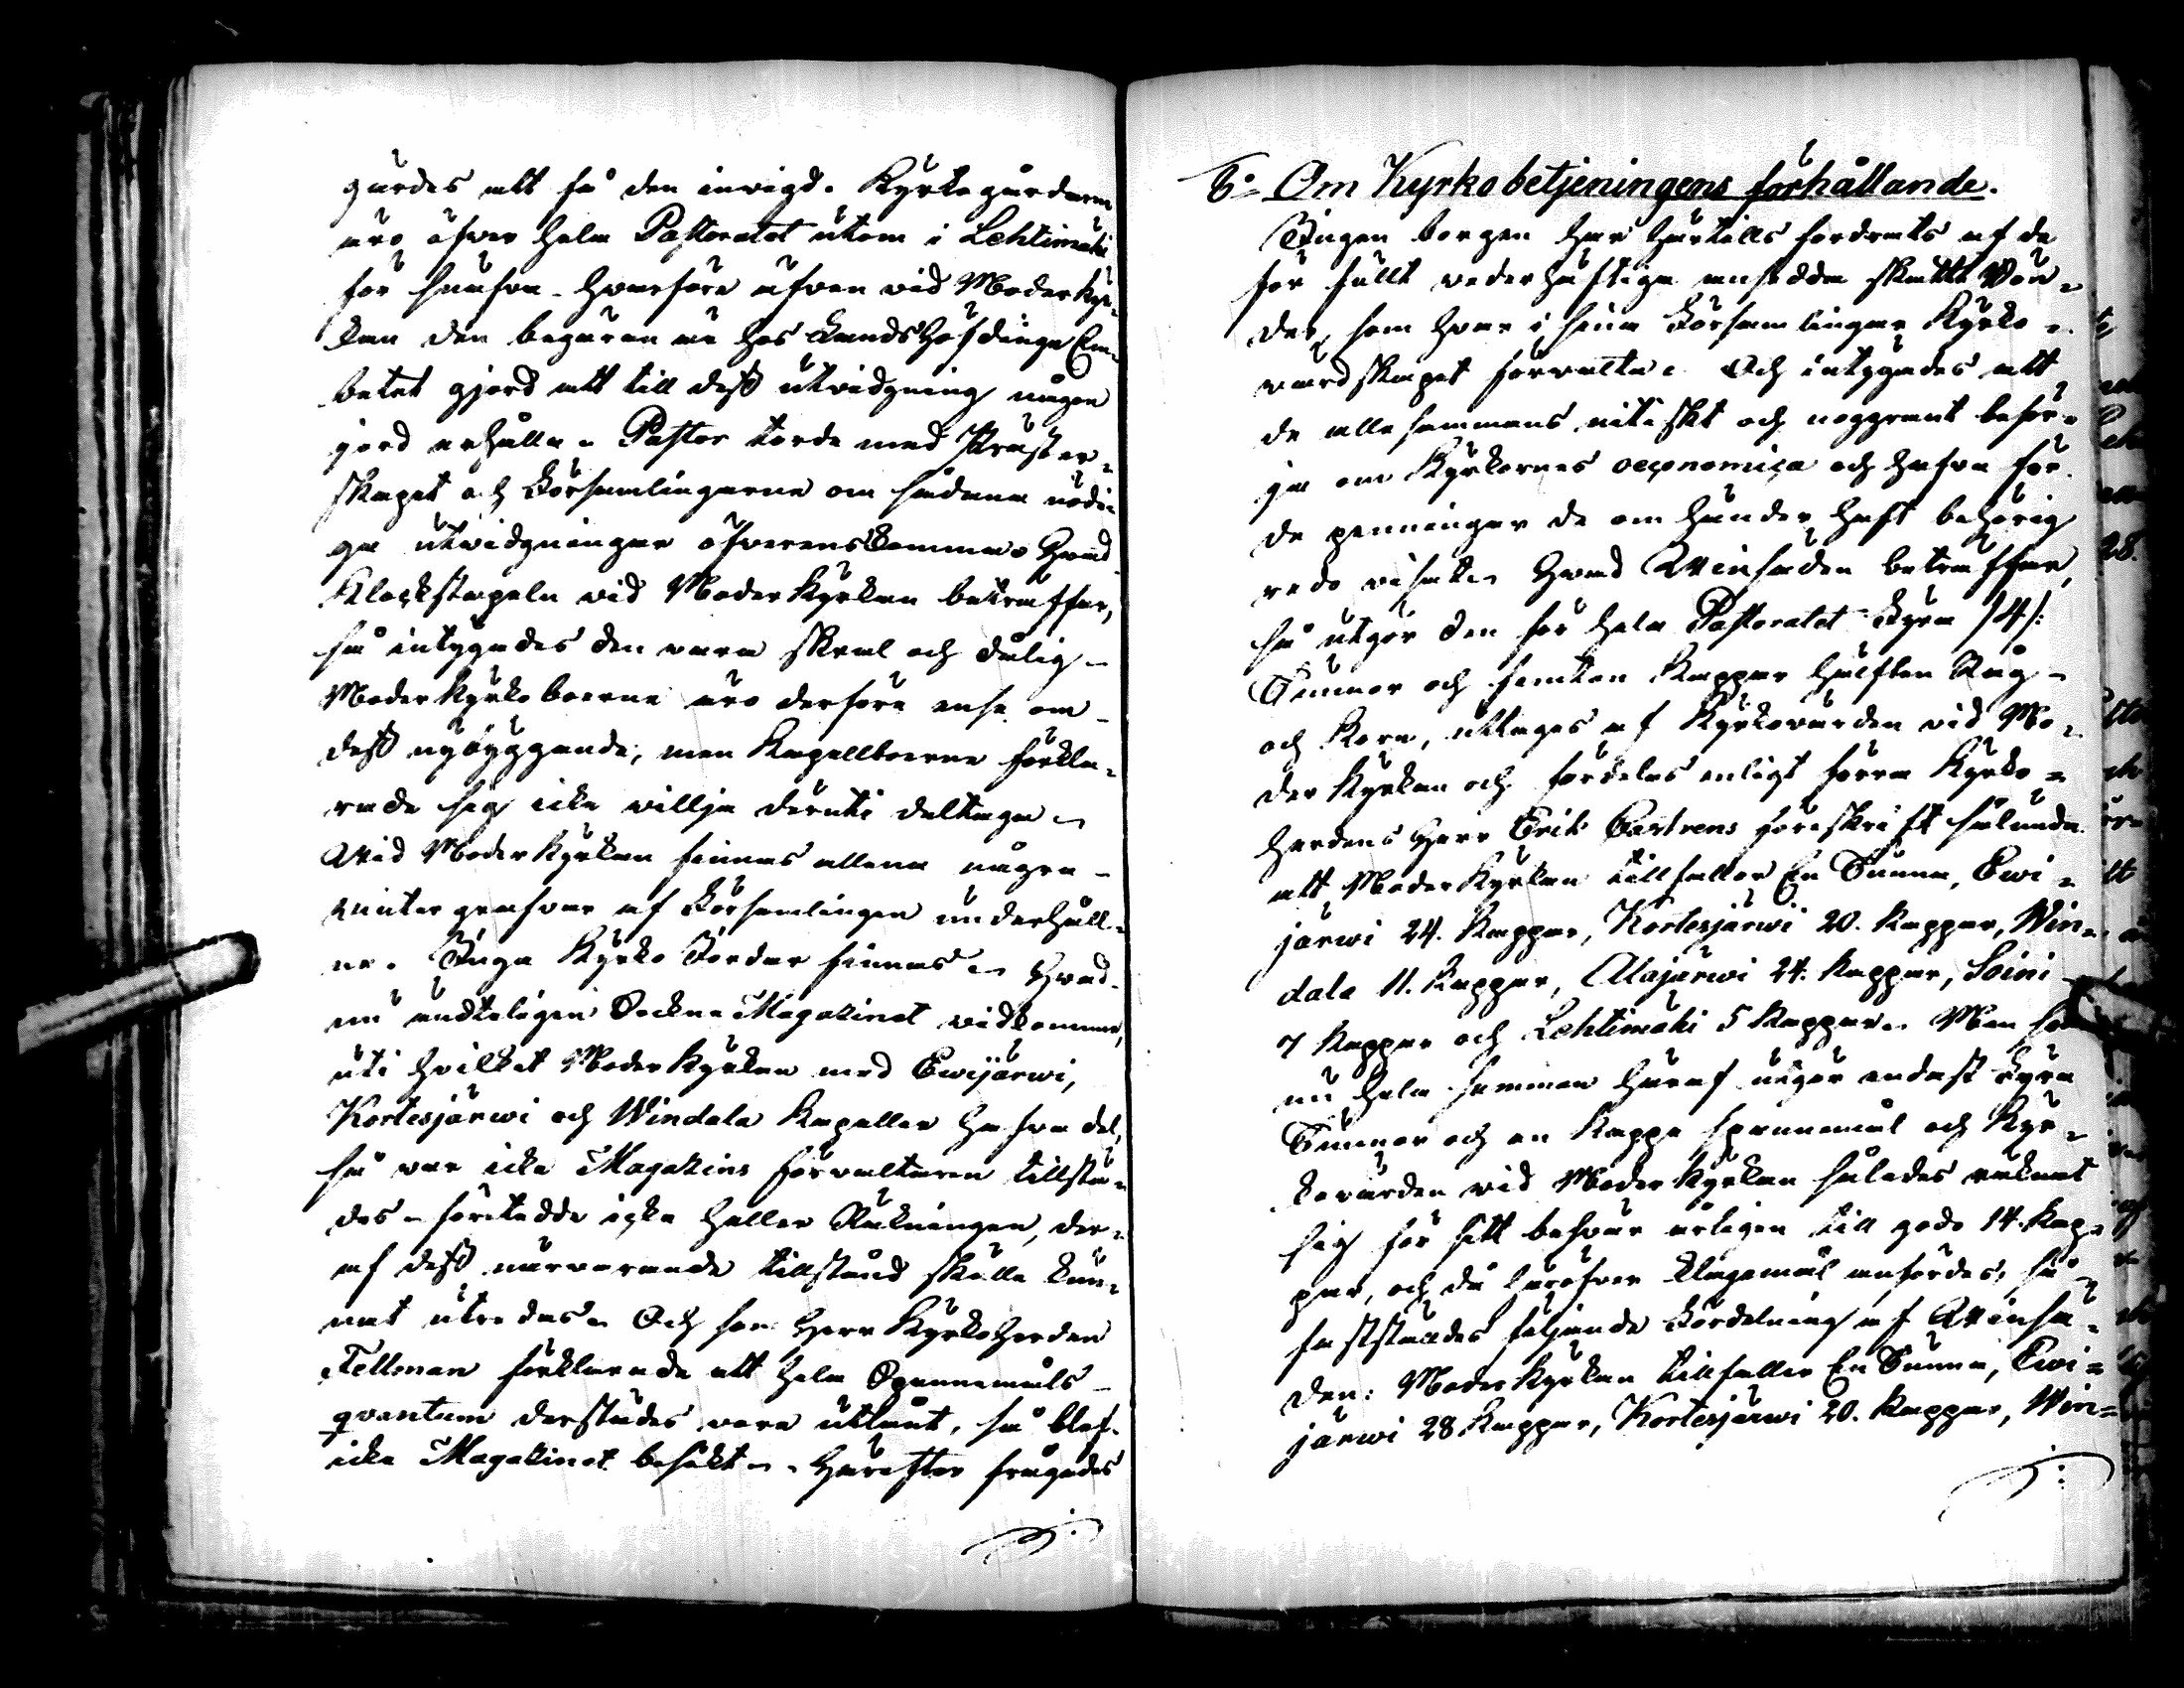 gärdes att få den invigd. Kyrkogårdarne
äro öfver hela Pastoratet utom i Lehtimäki
för knafva - hvarföre äfven vid Moderkyr-
kan den begäran är hos Landshöfdinge Em-
betet gjord att till dess utvidgning någon
jord erhålla. Pastor torde med Präster-
skapet och Församlingarne om sådana nödi-
ga utvidgningar öfverenskomma. Hvad
Klockstapeln vid Moderkyrkan beträffar,
så intygades den vara skral och dålig -
Moderkyrkoboerne äro derföre ense om
dess nybyggande, men Kapellboerne förkla-
rade sig icke villja däruti deltaga.
Vid Moderkyrkan finnas allena några
vintergrafvar af Församlingen underhåll-
na. Inga Kyrko Jordar finnas. Hvad
nu ändteligen Sockne Magazinet vidkommer,
uti hvilket Moderkyrkan med Ewijärwi,
Kortesjärwi och Windala Kapeller hafva del,
så var icke Magazins förvaltaren tillstä-
des - företedde icke heller Räkningen, der-
af dess närvarande tillstånd skulle kun-
nat utredas. Och som Herr Kyrkoherden
Fellman förklarade att hela Spannemåls-
qvantum derstädes vore utlånt, så blef
icke Magazinet besökt. Härefter frågades
6:o Om Kyrkobetjeningens förhållande.
Ingen borgen har härtills fordrats af de
för fullt vederhäftige ansedde skatte Bön-
der, som hvar i sina Församlingar Kyrko-
värdskapet förvalta. Och intygades att
de allesammans nitiskt och noggrant besör-
ja om Kyrkornes oeconomica och hafva för
de penningar de om händer haft behörig
redo visat. Hvad Vinsäden beträffar,
så utgör den för hela Pastoratet Fyra /4/:
Tunnor och femton Kappar hälften Råg
och Korn, uttages af Kyrkovärden vid Mo-
derkyrkan och fördelas enligt förra Kyrko-
herdens Herr Erik Castrens föreskrift sålunda
att Moderkyrkan tillfaller En Tunna, Ewi-
järwi 24. Kappar, Kortesjärwi 20. Kappar, Win-
dala 11. Kappar, Alajärwi 24. Kappar, Soini
7 Kappar och Lehtimäki 5 Kappar. Men som
nu hela summan häraf utgör endast Fyra
Tunnor och en Kappe spannemål och Kyr-
kovärden vid Moderkyrkan således räknat
sig för sitt besvär årligen till godo 14. Kap-
par, och då häröfver klagomål anfördes, så
fastställdes följande Fördelning af Vinsä-
den: Moderkyrkan tillfaller En Tunna, Ewi-
järwi 28 Kappar, Kortesjärwi 20. Kappar, Win-